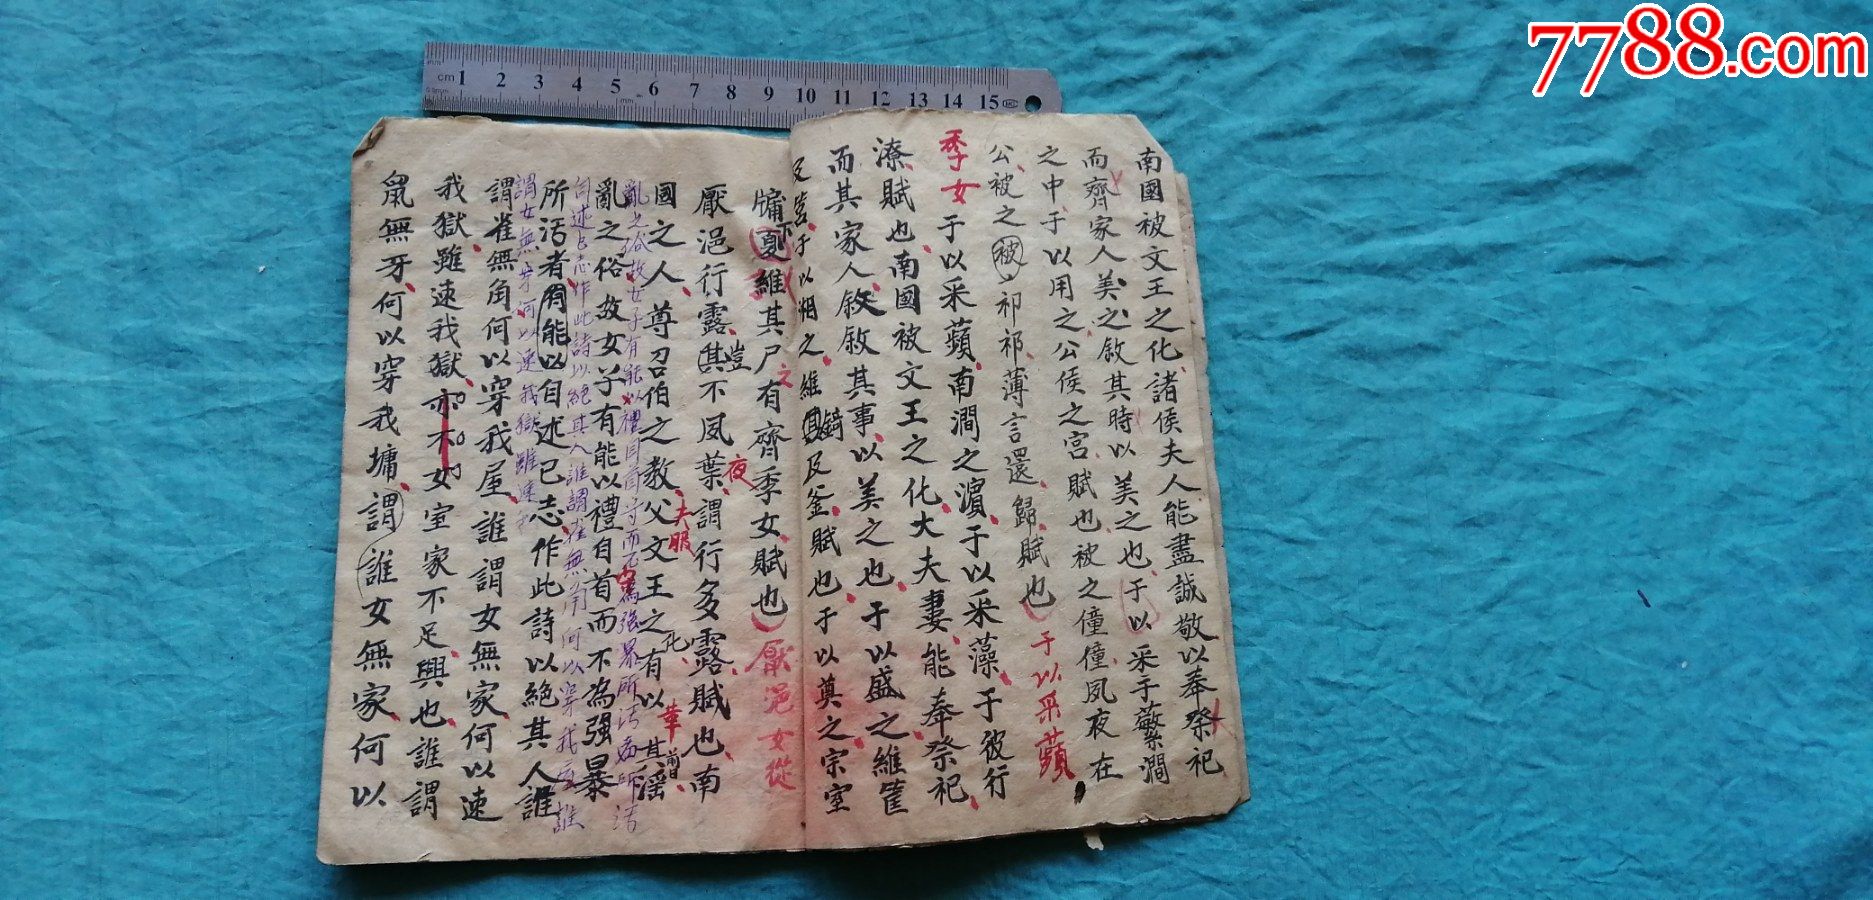 7788.com
cm 1 2 3 4 5 6 7 8 9 10 11 12 13 14 15
南國被文王之化諸侯夫人能盡誠敬以奉祭祀
而齊家人美之敘其時以美之也于以采于蘩澗
之中于以用之公侯之宮賦也被之僮僮夙夜在
公被之被祁祁薄言還歸賦也于以采蘋
季女于以采蘋南澗之濱于以采藻于彼行
潦賦也南國被文王之化大夫妻能奉祭祀
而其家人敘敘其事以美之也于以盛之維筐
及筥于以湘之維錡及釜賦也于以奠之宗室
牖下維其尸之有齊季女賦也厭浥女從
厭浥行露豈不夙夜謂行多露賦也南
國之人尊召伯之教夫服父文王之化有以革其前日淫
亂之俗故女子有能以禮自首守而不為強暴所污
亂之俗故女子有能以禮自首而不為强暴
所污者有能以自述已志作此詩以絕其人誰
謂雀無角何以穿我屋誰謂女無家何以速
我獄雖速我獄亦不女室家不足興也誰謂
鼠無牙何以穿我墉謂誰女無家何以